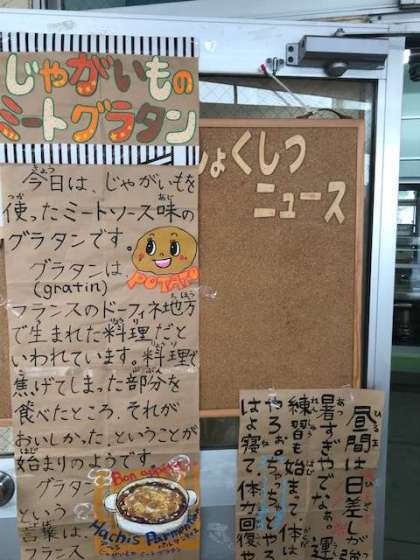 じゃがいもの
ミートグラタン
今日は、じゃがいもを
使ったミートソース味の
グラタンです。
グラタンは
(gratin)
フランスのドーフィネ地方
で生まれた料理だと
いわれています。料理で
焦げてしまった部分を
食べたところ、それが
おいしかった、ということが
始まりのようです。
グラタ
という
言葉は、
フランス
POTATO
Bon appétit
Hachis Parmentier
しょくしつ
ニュース
昼間は日差しが
暑すぎやでなぁ。運
練習も始まり、体は
やろぉ。ちゃちゃっとやる
はよ寝て、体力回復や